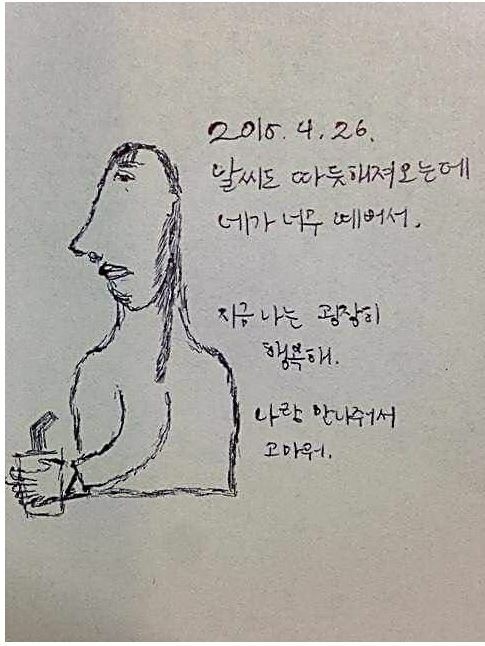 2015. 4. 26.
날씨도 따듯해져오는데
네가 너무 예뻐서.
지금 나는 굉장히
행복해.
나랑 만나줘서
고마워.